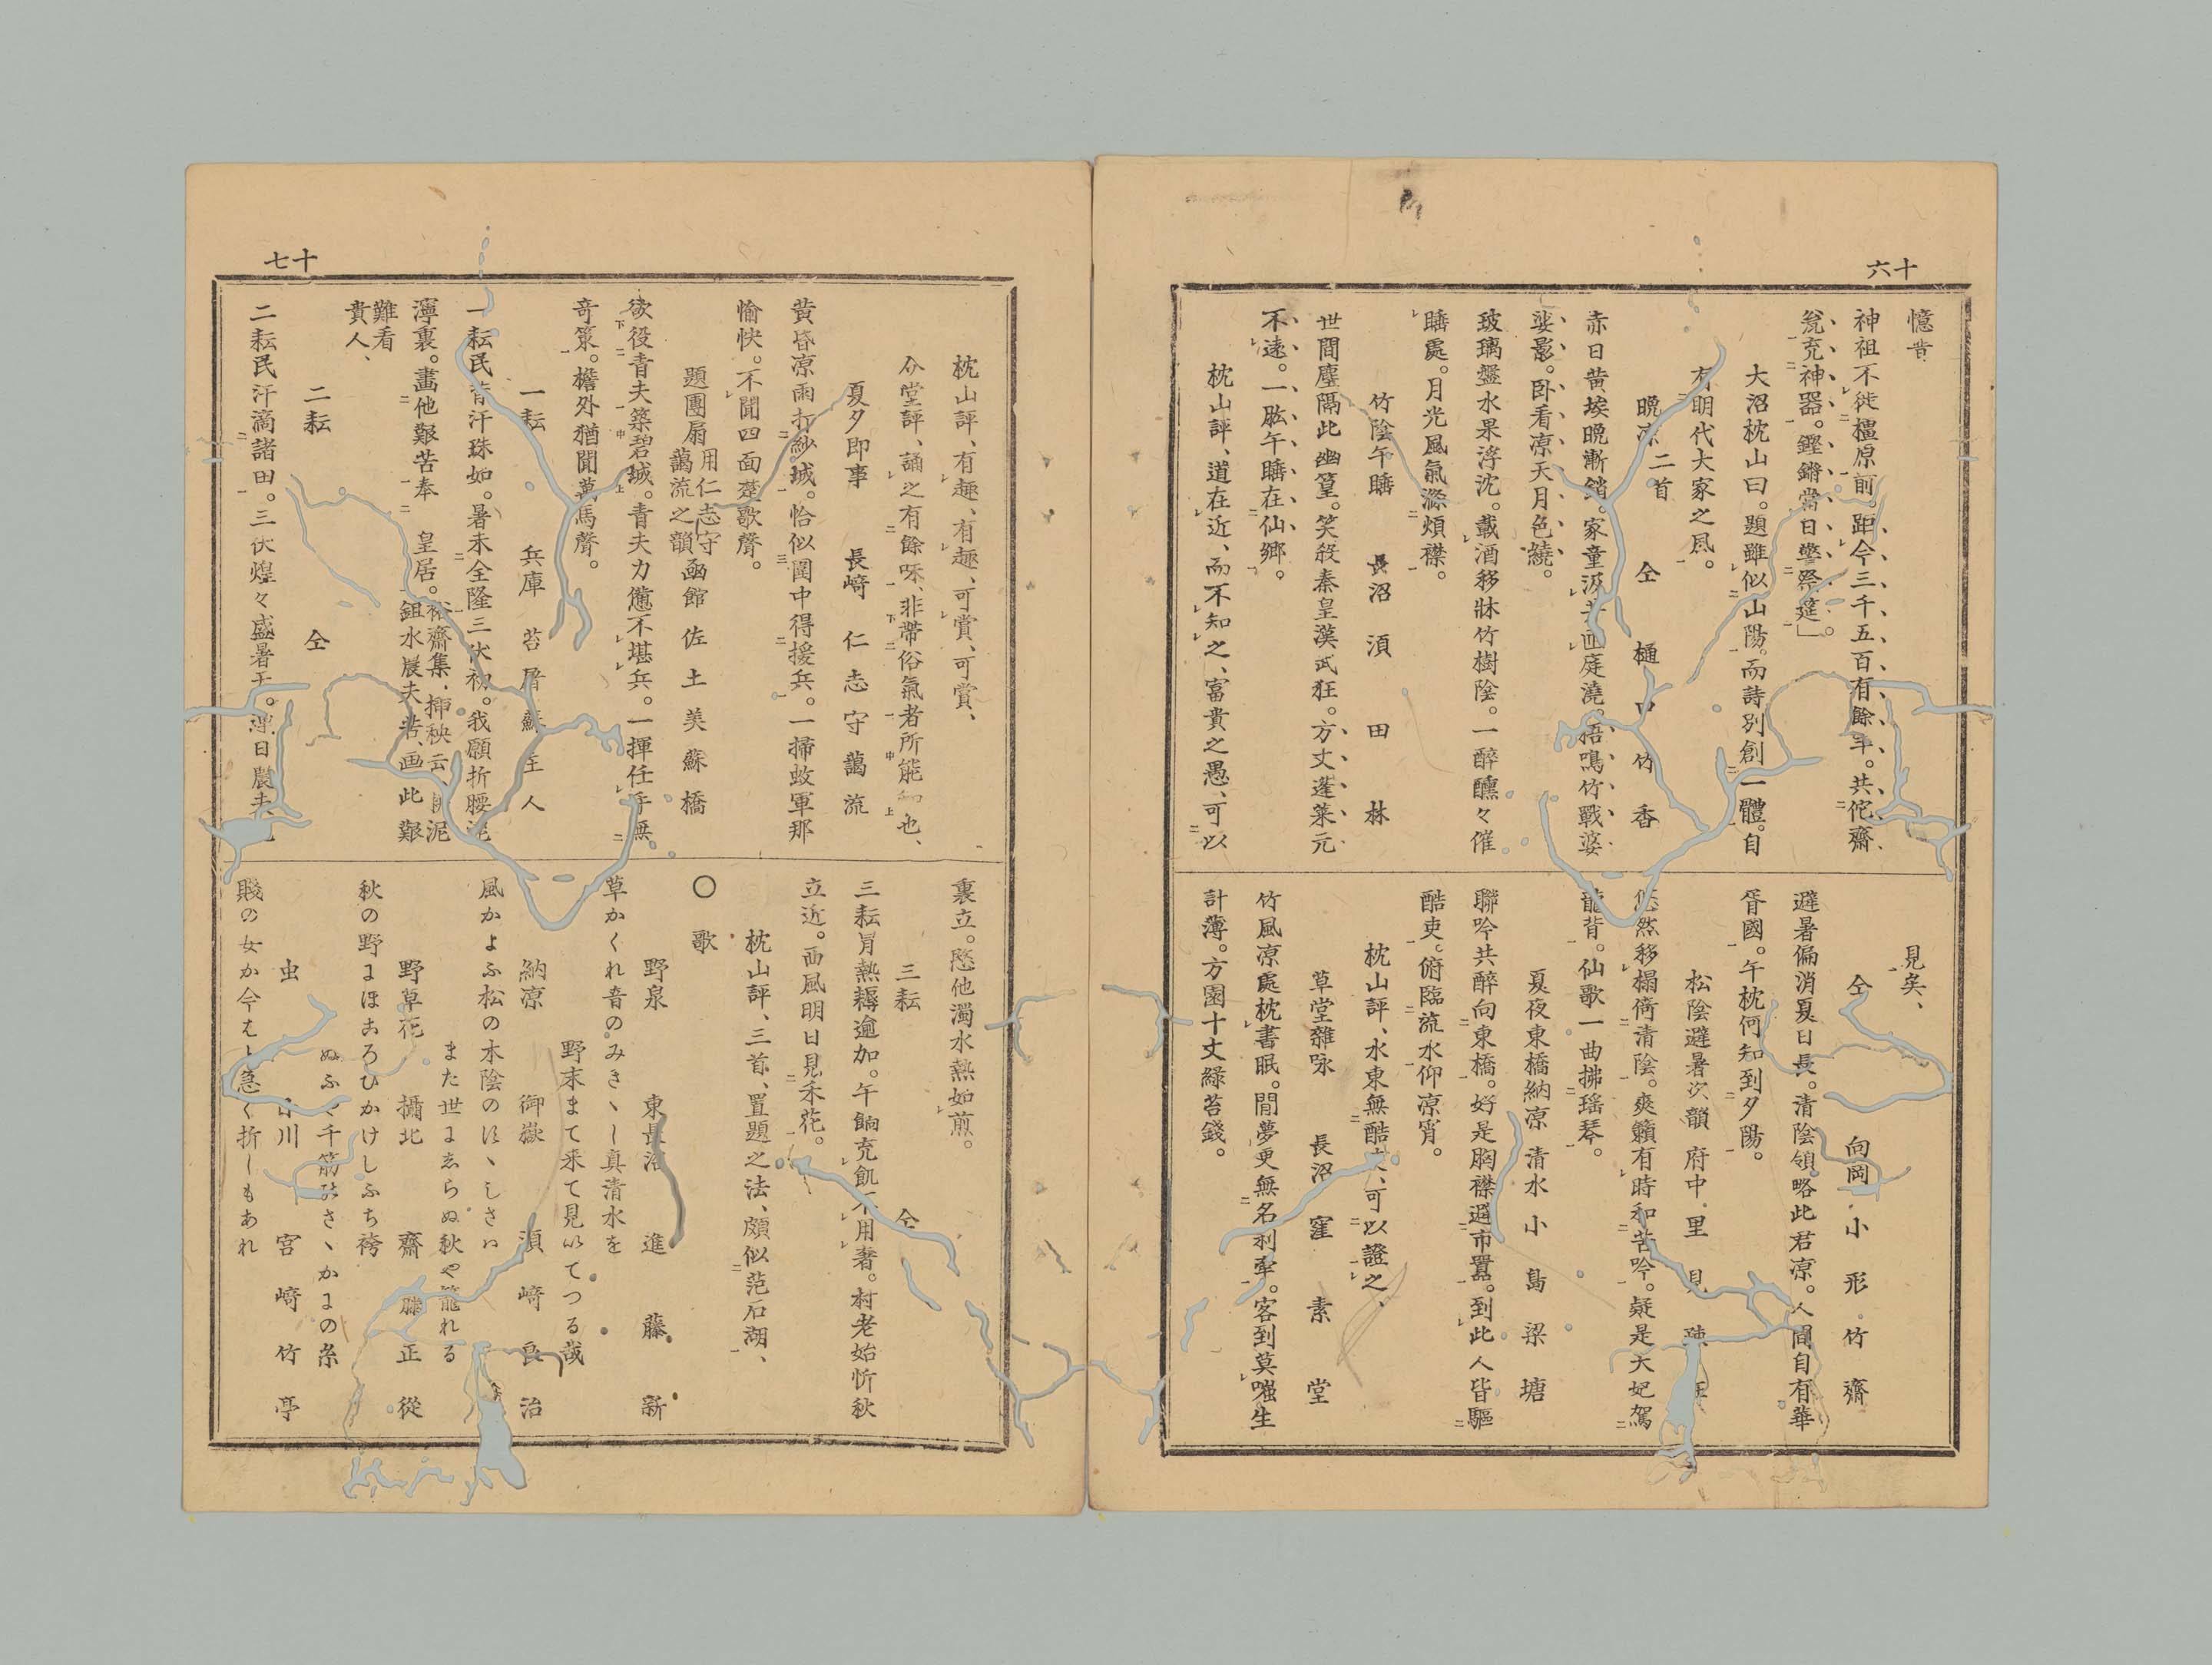 十六
憶昔
神祖不徙橿原前。距今三千五百有餘年。共侘齋
瓮充神器。鏗鏘當日擊祭筵」。
大沼枕山曰。題雖似山陽。而詩別創一體。自
有明代大家之風。
晩凉二首 仝 樋口竹香
赤日黄埃晩漸銷。家童汲 画庭澆。梧鳴竹戰婆
娑影。卧看凉天月色繞。
玻璃盤水果浮沈。載酒移牀竹樹陰。一醉醺々催
睡處。月光風氣滌煩襟。
竹陰午睡 長沼 須田林
世間塵隔此幽篁。笑殺秦皇漢武狂。方丈蓬萊元
不遠。一肱午睡在仙郷。
枕山評、道在近、而不知之、富貴之愚、可以
見矣、
仝 向岡 小形竹齋
避暑偏消夏日長。清陰領略此君凉。人間自有華
胥國。午枕何知到夕陽。
松陰避暑次韻 府中 里見
悠然移榻倚清陰。爽籟有時和苦吟。疑是大妃駕
龍背。仙歌一曲拂瑶琴。
夏夜東橋納凉 清水 小島梁塘
聯吟共醉向東橋。好是胸襟避市囂。到此人皆驅
酷吏。俯臨流水仰凉宵。
枕山評、水東無酷 、可以證之、
草堂雜咏 長沼 窪素堂
竹風凉處枕書眠。閒夢更無名利牽。客到莫嗤生
計薄。方園十丈綠苔錢。
十七
枕山評、有趣、有趣、可賞、可賞、
介堂評、誦之有餘味、非帶俗氣者所能 也、
夏夕即事 長﨑 仁志守藹流
黄昏凉雨打紗城。恰似圍中得援兵。一掃蚊軍那
愉快。不聞四面楚歌聲。
題團扇 用仁志守藹流之韻 函館 佐土美蘇橋
欲役青夫築碧城。青夫力憊不堪兵。一揮任手無
奇策。檐外猶聞萬馬聲。
一耘 兵庫 苔屑蘇主人
一耘民背汗珠如。暑未全隆三伏初。我願折腰泥
濘裏。畫他艱苦奉 皇居。裕齋集、挿秧云、 泥
鉏水農夫苦画此艱
難看
貴人、
二耘 仝
二耘民汗滴諸田。三伏煌々盛暑天。 日農夫
裏立。愍他濁水熱如煎。
三耘 仝
三耘冐熱耨逾加。午餉充飢不用奢。村老始忻秋
立近。西風明日見禾花。
枕山評、三首、置題之法、頗似范石湖、
〇 歌
野泉 東長沼 進藤新
草かくれ音のみきゝし真清水を
野末まて来て見いてつる哉
納凉 御嶽 須﨑良治
風かよふ松の木陰のほゝしさハ
また世にゑらぬ秋や籠れる
野草花 攝北 齋藤正從
秋の野にほころひかけしふち袴
ぬふや千筋 さゝかにの糸
虫 川 宮﨑竹亭
賤の女か今 急く折しもあれ